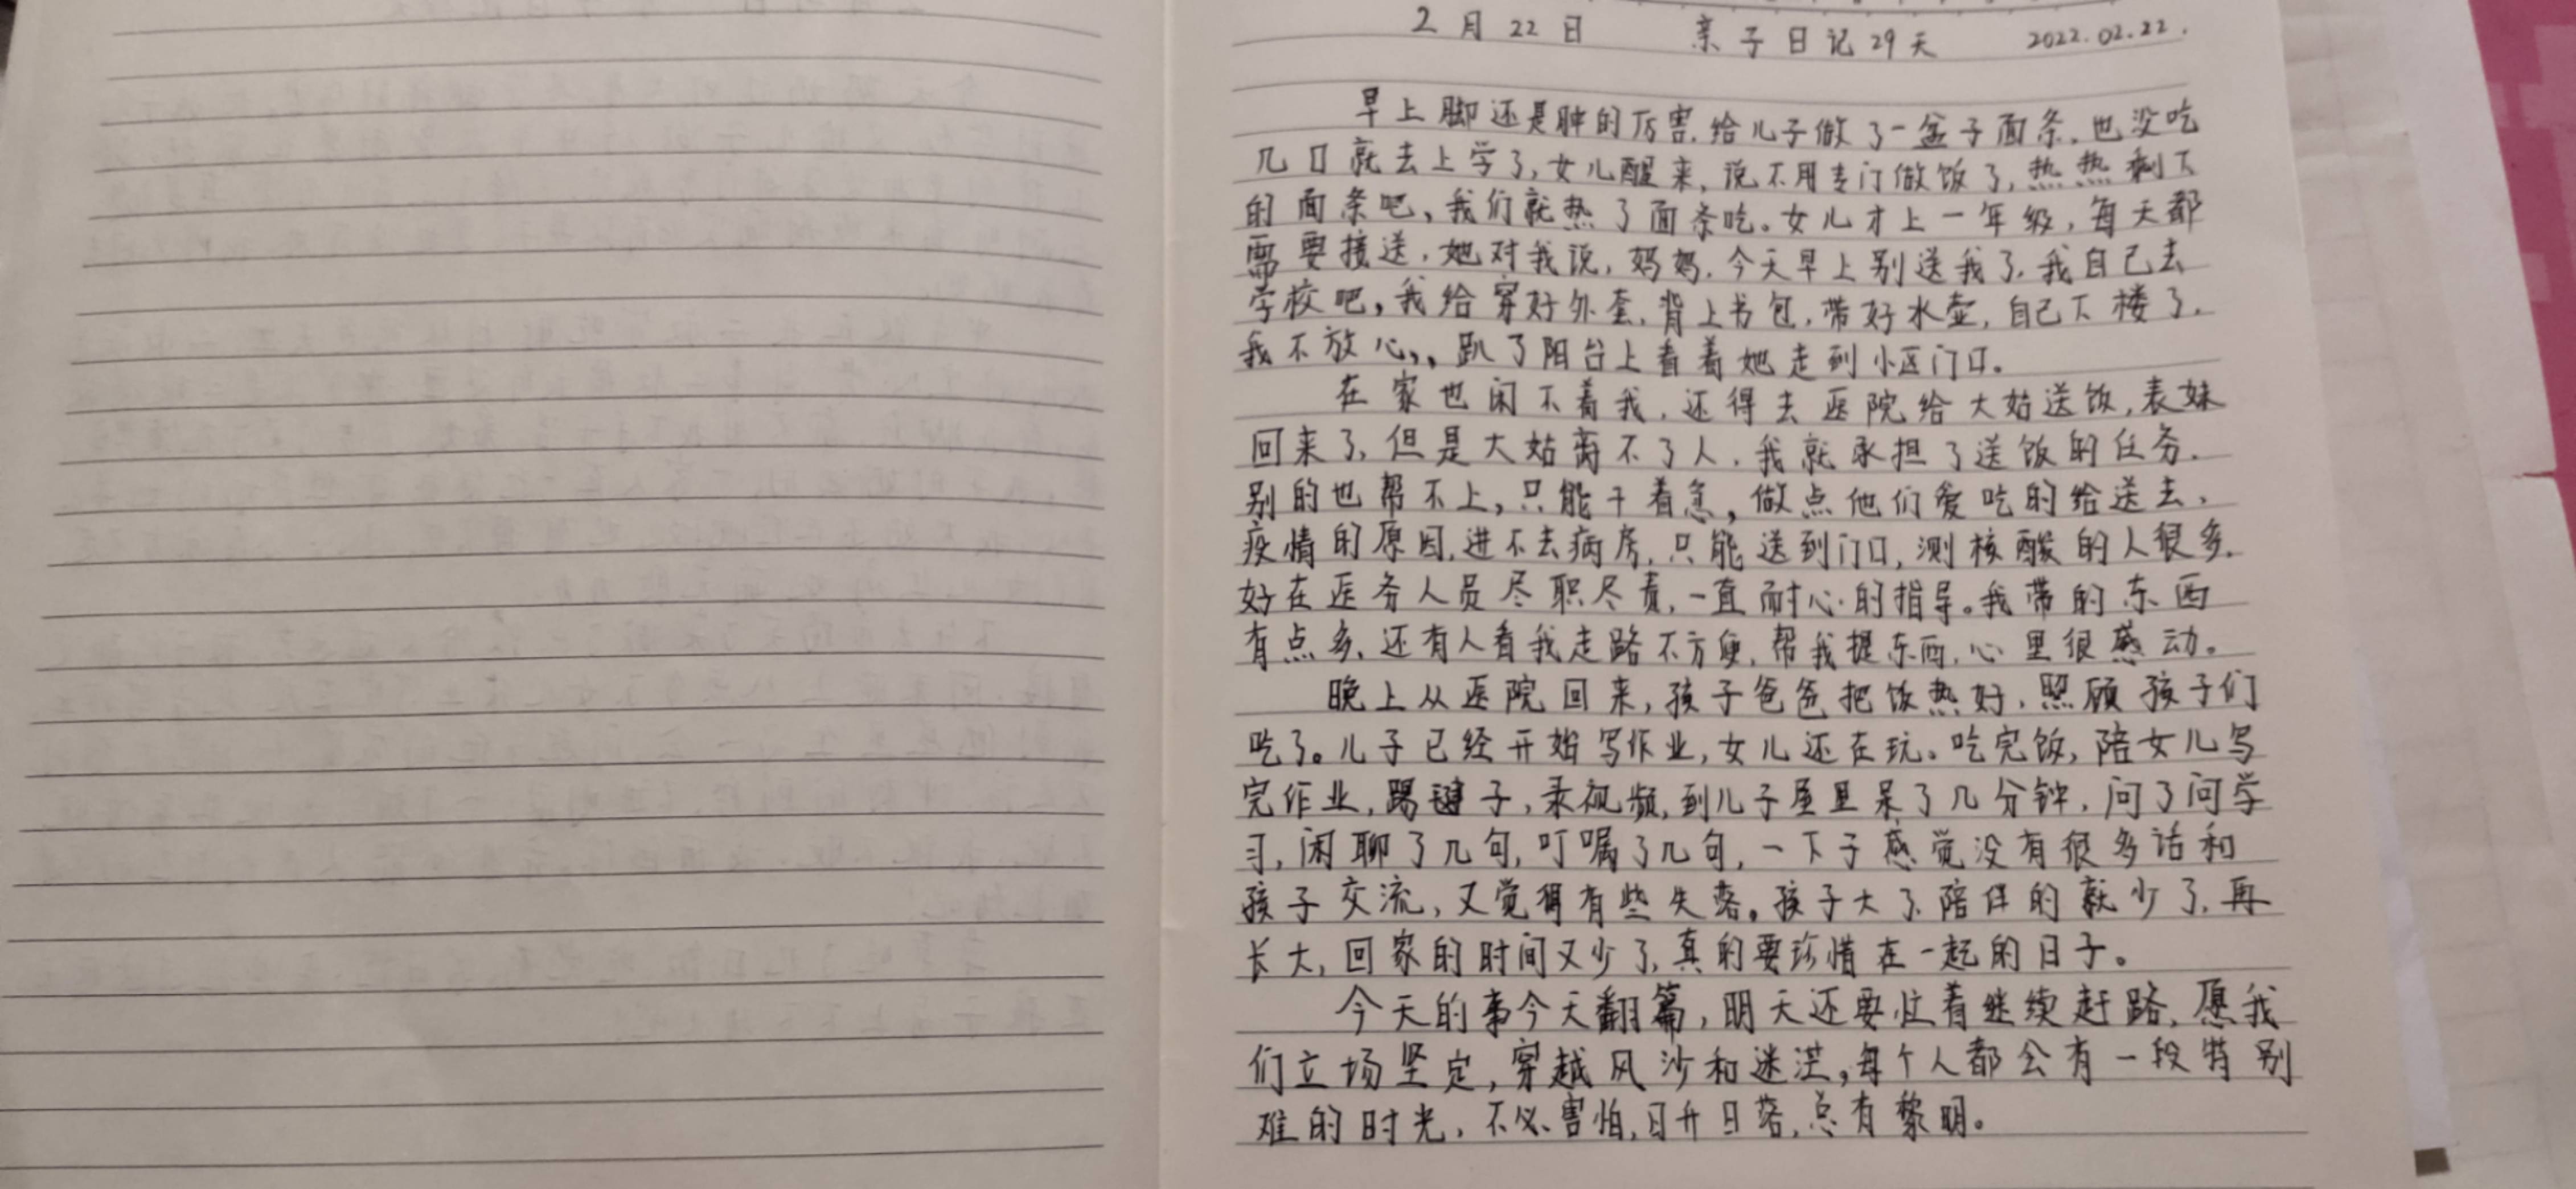 2月22日 亲子日记29天 2022.02.22.
早上脚还是肿的厉害.给儿子做了一盆子面条.也没吃
几口就去上学了,女儿醒来,说不用专门做饭了,热热剩下
的面条吧,我们就热了面条吃。女儿才上一年级,每天都
需要接送,她对我说,妈妈.今天早上别送我了.我自己去
学校吧,我给穿好外套.背上书包,带好水壶,自己下楼了.
我不放心,,趴了阳台上看着她走到小区门口。
在家也闲不着我,还得去医院给大姑送饭,表妹
回来了,但是大姑离不了人.我就承担了送饭的任务.
别的也帮不上,只能干着急,做点他们爱吃的给送去.
疫情的原因,进不去病房,只能送到门口,测核酸的人很多.
好在医务人员尽职尽责,一直耐心的指导。我带的东西
有点多,还有人看我走路不方便,帮我提东西,心里很感动。
晚上从医院回来,孩子爸爸把饭热好.照顾孩子们
吃了。儿子已经开始写作业,女儿还在玩。吃完饭,陪女儿写
完作业,踢毽子,录视频,到儿子屋里呆了几分钟,问了问学
习,闲聊了几句,叮嘱了几句,一下子感觉没有很多话和
孩子交流,又觉得有些失落。孩子大了,陪伴的就少了,再
长大,回家的时间又少了,真的要珍惜在一起的日子。
今天的事今天翻篇,明天还要忙着继续赶路,愿我
们立场坚定,穿越风沙和迷茫,每个人都会有一段特别
难的时光,不必害怕,日升日落,总有黎明。